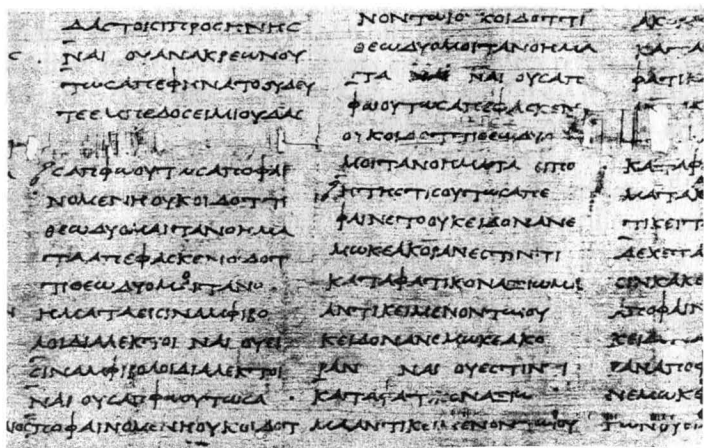 ΔΑϹΤΟΙϹΙΠΡΟϹΗΝΗϹ
ΝΑΙ ΟΥΑΝΑΚΡΕΩΝΟΥ
ΤΩϹΑΠΕΦΗΝΑΤΟΟΥΔΕΥ
ΤΕΕΜΠΕΔΟϹΕΙΜΙΟΥΔΑϹ
ϹΑΠΦΩΟΥΤΩϹΑΠΟΦΑΙ
ΝΟΜΕΝΗΟΥΚΟΙΔΟΤΤΙ
ΘΕΩΔΥΟΜΟΙΤΑΝΟΗΜΑ
ΤΑΑΠΕΦΑϹΚΕΝΙΟΔΟΤ
ΤΙΘΕΩΔΥΟΜΟΙΤΑΝΟ
ΗΜΑΤΑΕΙϹΙΝΑΜΦΙΒΟ
ΛΟΙΔΙΑΛΕΚΤΟΙ ΝΑΙ ΟΥΕΙ
ϹΙΝΑΜΦΙΒΟΛΟΙΔΙΑΛΕΚΤΟΙ
ΝΑΙ ΟΥϹΑΠΦΩΟΥΤΩϹΑ
ΠΟΦΑΙΝΟΜΕΝΗΟΥΚΟΙΔΟΤ
ΝΟΝΤΩΙΟΥΚΟΙΔΟΤΤΙ
ΘΕΩΔΥΟΜΟΙΤΑΝΟΗΜΑ
ΤΑ ΝΑΙ ΟΥϹΑΠ
ΦΩΟΥΤΩϹΑΠΕΦΑϹΚΕΝ
ΟΥΚΟΙΔΟΤΤΙΘΕΩΔΥΟ
ΜΟΙΤΑΝΟΗΜΑΤΑ ΕΙΠΟ
ΗΤΗϹΤΙϹΟΥΤΩϹΑΠΕ
ΦΑΙΝΕΤΟΟΥΚΕΙΔΟΝΑΝΕ
ΜΩΚΕΑΚΟΡΑΝΕϹΤΙΝΤΙ
ΚΑΤΑΦΑΤΙΚΟΝΑΞΙΩΜΑ
ΑΝΤΙΚΕΙΜΕΝΟΝΤΩΙΟΥ
ΚΕΙΔΟΝΑΝΕΜΩΚΕΑΚΟ
ΡΑΝ ΝΑΙ ΟΥΕϹΤΙΝΤΙ
ΚΑΤΑΦΑΤΙΚΟΝΑΞΙΩ
ΜΑΑΝΤΙΚΕΙΜΕΝΟΝΤΩΙΟΥ
ΚΑΤΑ
ΦΑΤΙΚ
ΚΑΤΑΦ
ΜΑΤΑ
ΤΙΚΕΙΤ
ΔΕΧΕΤΑ
ϹΙΝΚΑΚΕ
ΑΠΟΦΑΙΝ
ΚΕΙΔ
ΡΑΝΑΠΟΦ
ΝΕΜΩΚΕ
ΤΩΝΟΥΕΙ